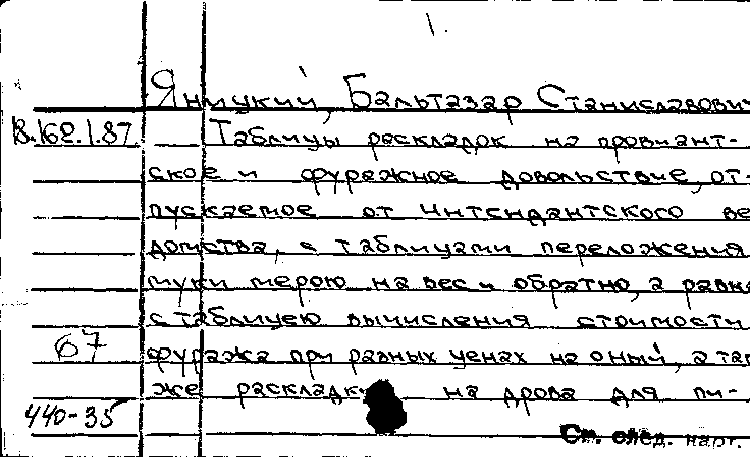 1.
Яницкий, Бальтазар Станиславович
В.162.1.87 Таблицы раскладок на провиант-
ское и фуражное довольствие, от-
пускаемое от Интендантского ве
домства, с таблицами переложения
муки мерою на вес и обратно, а равно
с таблицею вычисления стоимости
67 фуража при разных ценах на оный, а так
же раскладки на дрова для пи-
440-35
См. след. карт.